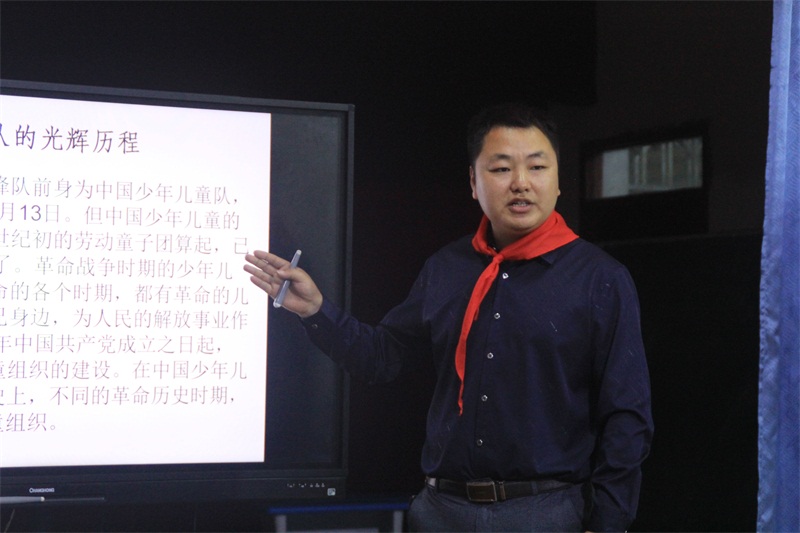 人的光辉历程
锋队前身为中国少年儿童队，
月13日。但中国少年儿童的
世纪初的劳动童子团算起，已
了。革命战争时期的少年儿
命的各个时期，都有革命的儿
己身边，为人民的解放事业作
年中国共产党成立之日起，
童组织的建设。在中国少年儿
史上，不同的革命历史时期，
童组织。
CHANGHONG